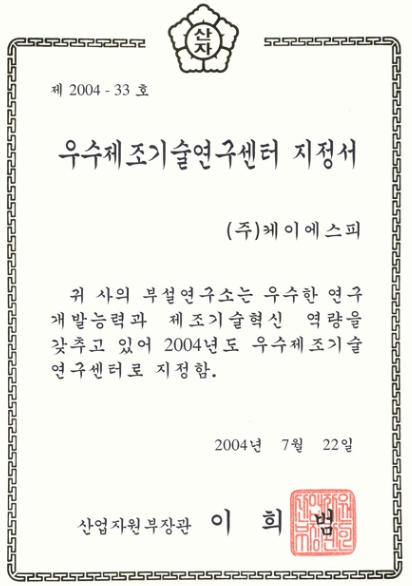 산자
제 2004 - 33 호
우수제조기술연구센터 지정서
(주)케이에스피
귀 사의 부설연구소는 우수한 연구
개발능력과 제조기술혁신 역량을
갖추고 있어 2004년도 우수제조기술
연구센터로 지정함.
2004년 7월 22일
산업자원부장관 이 희 범